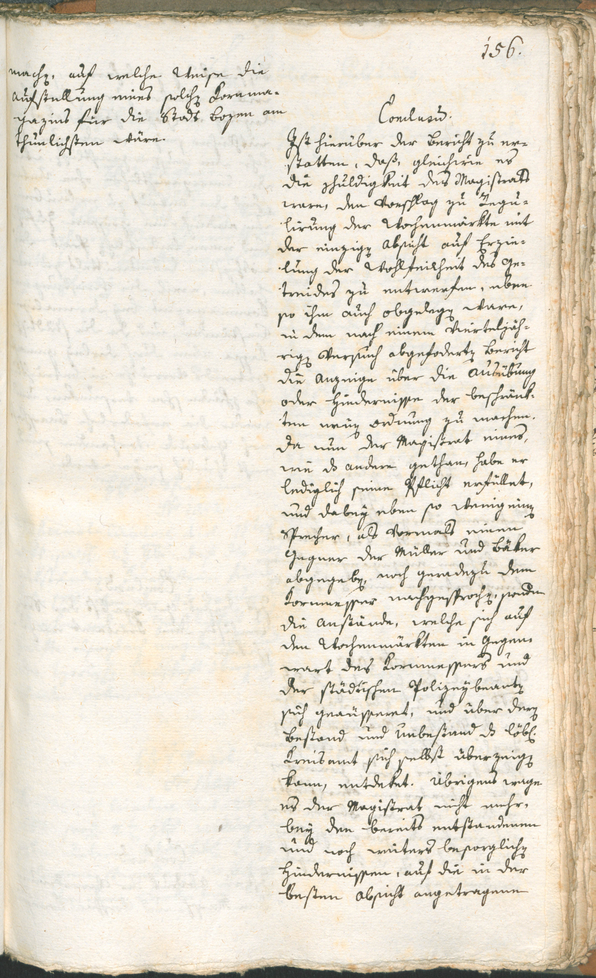 156.
machen, auf welche Weise die
Aufstellung eines solchen Kornma-
gazins für die Stadt Bozen am
thunlichsten wäre.
Conclusum.
Ist hierüber der Bericht zu er-
statten, daß, gleichwie es
die schuldigkeit des Magistrats
ware, den Vorschlag zu Regu-
lirung der Wochenmärkte mit
der einzigen Absicht auf Erzie-
lung der Wohlfeilheit des Ge-
treides zu entwerfen, eben
so ihm auch obgelegen ware,
in dem nach einem vierteljäh-
rigen Versuch abgeforderten Bericht
die Anzeige über die Ausübung
oder Hindernisse der beschränk-
ten neuen Ordnung zu machen.
da nun der Magistrat eines,
wie das andere gethan, habe er
lediglich seine Pflicht erfüllet,
und dabey eben so wenig einen
Sprecher, als vormals einen
Gegner der Müller und Bäker
abgegeben, noch geradezu dem
Kornmesser nachgesprochen, sondern
die Anstände, welche sich auf
den Wochenmärkten in Gegen
wart des Kornmessers und
der städtischen Polizeybeamten
sich geäusseret, und über deren
Bestand und Unbestand das löbl.
Kreisamt sich selbst überzeugen
kann, entdeket. Übrigens wage
es der Magistrat nicht mehr,
bey den bereits entstandenen
und noch weiters besorglichen
Hindernissen, auf die in der
besten Absicht angetragene